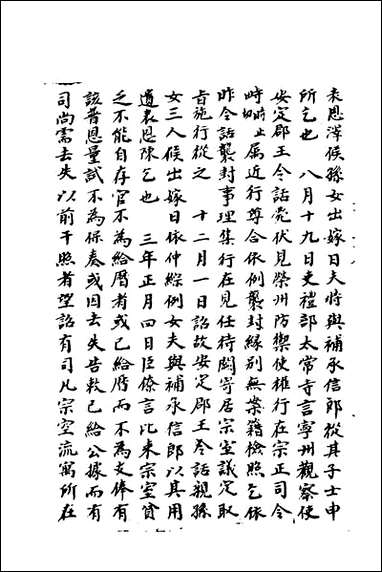 表恩澤候孫女出嫁日夫將與補承信郎從其子士申
所乞也　八月十九日吏禮部太常寺言寧州觀察使
安定郡王令話薨伏見榮州防禦使權行在宗正司令
時〻止属近行尊合依例襲封緣別無案籍檢照乞依
昨令話襲封事理集行在見任待闕寄居宗室議定取
旨施行從之　十二月一日詔故安定郡王令話親孫
女三人候出嫁日依仲綜例女夫與補承信郎以其用
遺表恩陳乞也　三年正月四日臣僚言比来宗室貧
乏不能自存官不為給曆者或已給曆而不為支俸有
該普恩量試不為保奏或因去失告敕已給公據而有
司尚需去失以前干照者望詔有司凡宗室流寓所在